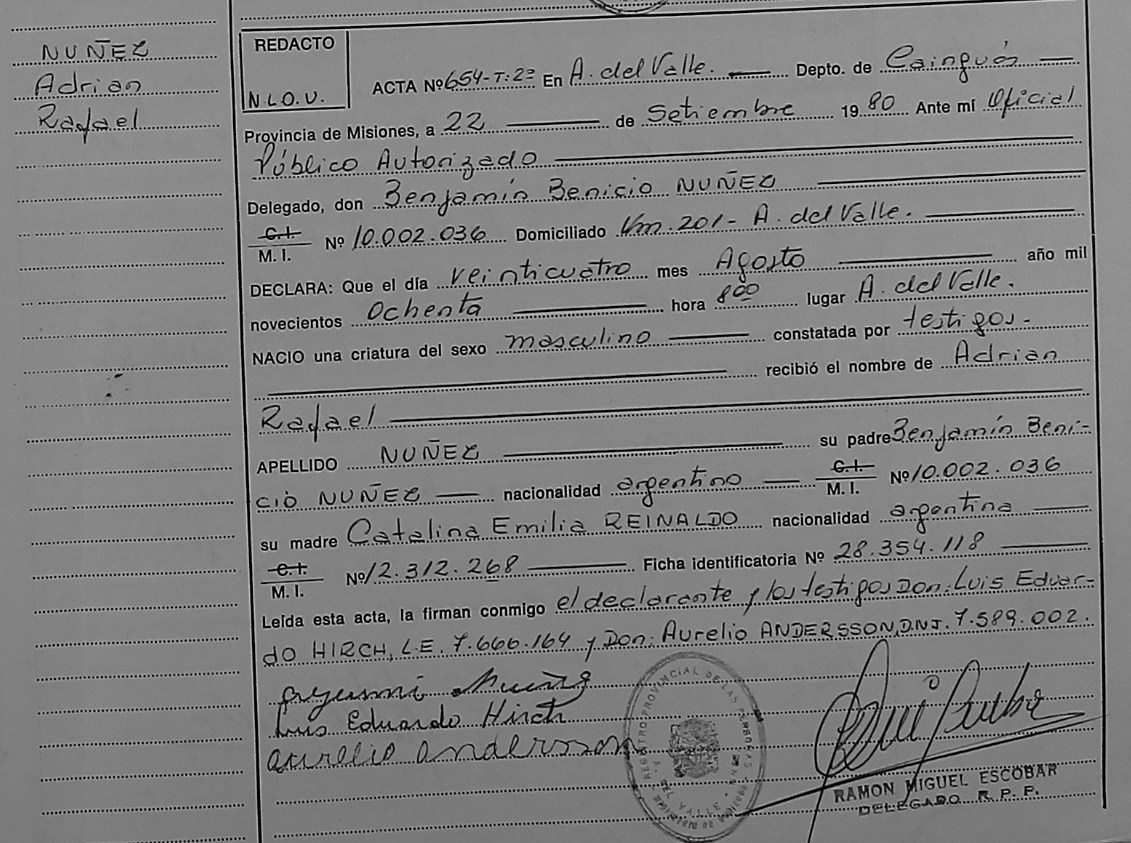 NUÑEZ
Adrian
Rafael
REDACTO
N.L.O.U.
ACTA Nº 654-T:2º En A. del Valle. Depto. de Cainguás
Provincia de Misiones, a 22 de Setiembre 1980 Ante mí Oficial
Público Autorizado
Delegado, don Benjamín Benicio NUÑEZ
C.I.
M.I. Nº 10.002.036 Domiciliado Km. 201- A. del Valle.
DECLARA: Que el día veinticuatro mes Agosto año mil
novecientos Ochenta hora 8 00 lugar A. del Valle.
NACIO una criatura del sexo masculino constatada por testigos.-
recibió el nombre de Adrian
Rafael
APELLIDO NUÑEZ su padre Benjamín Beni-
cio NUÑEZ nacionalidad argentino C.I. M.I. Nº 10.002.036
su madre Catalina Emilia REINALDO nacionalidad argentina
C.I.
M.I. Nº 12.312.268 Ficha identificatoria Nº 28.354.118
Leída esta acta, la firman conmigo el declarante y los testigos Don: Luis Eduar-
do HIRCH, L.E. 7.666.164 y Don: Aurelio ANDERSSON, D.N.I. 7.589.002.
Luis Eduardo Hirch
aurelio andersson
REGISTRO PROVINCIAL DE LAS PERSONAS
RAMON MIGUEL ESCOBAR
DELEGADO R. P. P.